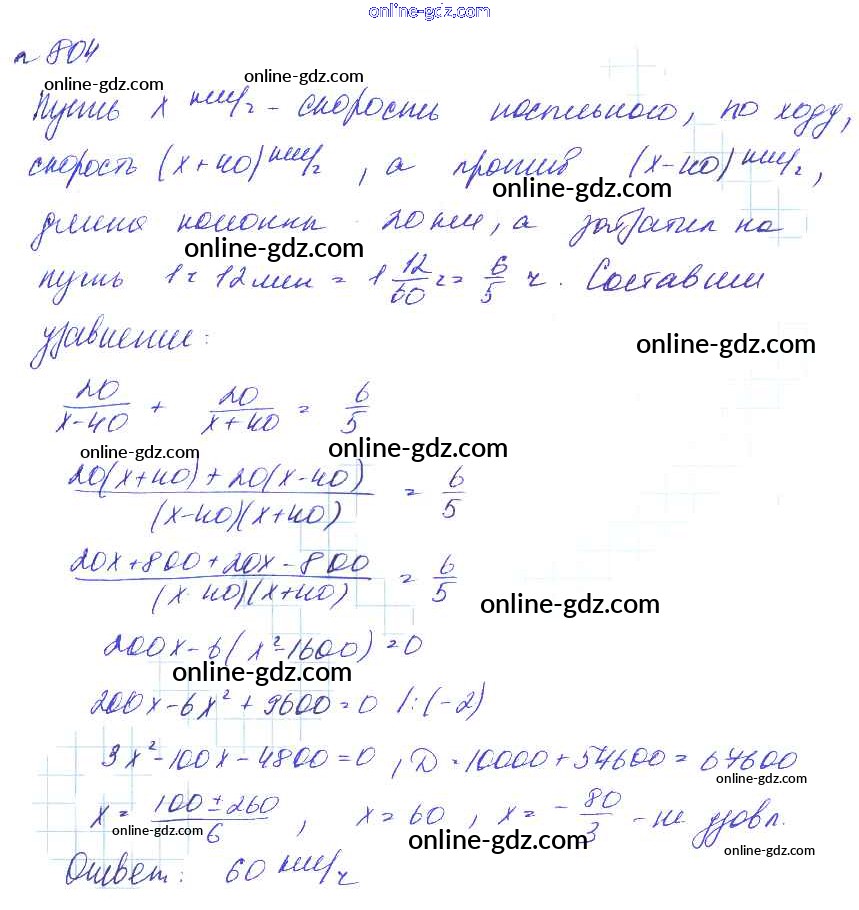 online-gdz.com
n 804
online-gdz.com online-gdz.com
Пусть x км/ч - скорость посыльного, по ходу,
скорость (x+40) км/ч, а против (x-40) км/ч,
online-gdz.com
длина колонны 20 км, а затратил на
online-gdz.com
путь 1ч 12 мин = 1 12/60 ч = 6/5 ч. Составим
уравнение:
online-gdz.com
20/(x-40) + 20/(x+40) = 6/5
online-gdz.com online-gdz.com
(20(x+40)+20(x-40))/((x-40)(x+40)) = 6/5
(20x+800+20x-800)/((x 40)(x+40)) = 6/5
online-gdz.com
200x-6(x²-1600)=0
online-gdz.com
200x-6x²+9600=0 /:(-2)
3x²-100x-4800=0, D=10000+57600=67600
online-gdz.com
x=(100±260)/6, x=60, x=-80/3 - не удовл.
online-gdz.com online-gdz.com online-gdz.com
Ответ: 60 км/ч